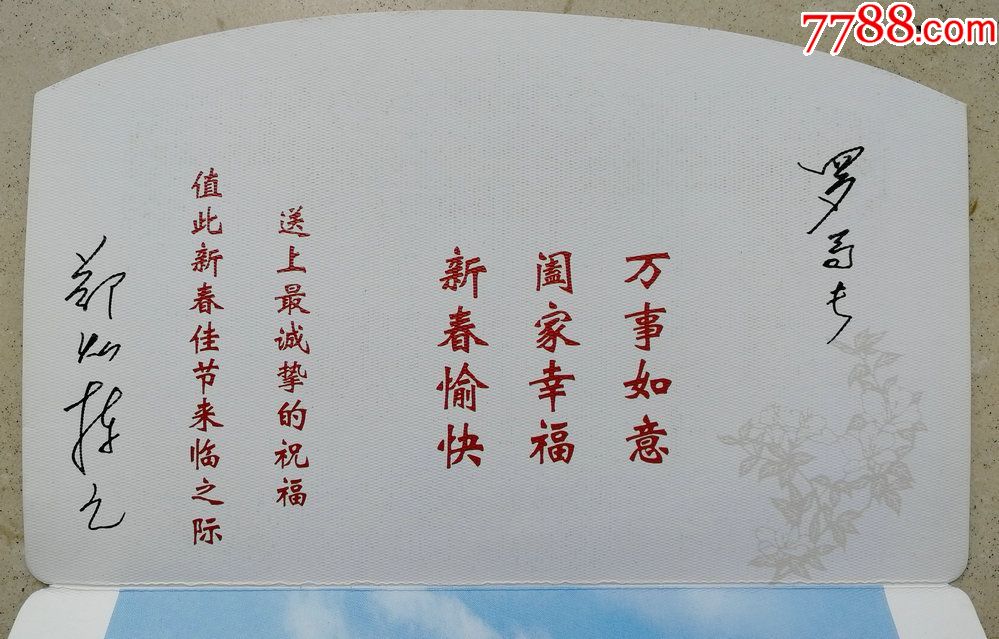 7788.com
郑灿
值此新春佳节来临之际
送上最诚挚的祝福
新春愉快
阖家幸福
万事如意
罗局长